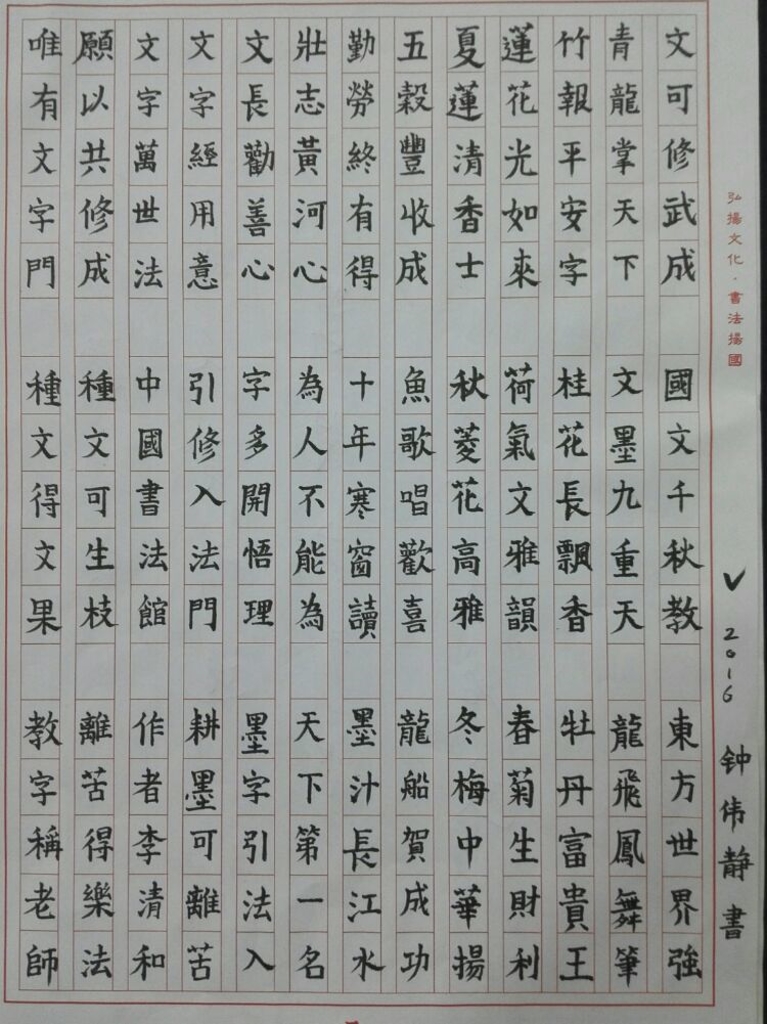 弘揚文化·書法揚國
文可修武成 國文千秋教 東方世界強
青龍掌天下 文墨九重天 龍飛鳳舞筆
竹報平安字 桂花長飄香 牡丹富貴王
蓮花光如來 荷氣文雅韻 春菊生財利
夏蓮清香士 秋菱花高雅 冬梅中華揚
五穀豐收成 魚歌唱歡喜 龍船賀成功
勤勞終有得 十年寒窗讀 墨汁長江水
壯志黃河心 為人不能為 天下第一名
文長勸善心 字多開悟理 墨字引法入
文字經用意 引修入法門 耕墨可離苦
文字萬世法 中國書法館 作者李清和
願以共修成 種文可生枝 離苦得樂法
唯有文字門 種文得文果 教字稱老師
✓2016 钟伟静書